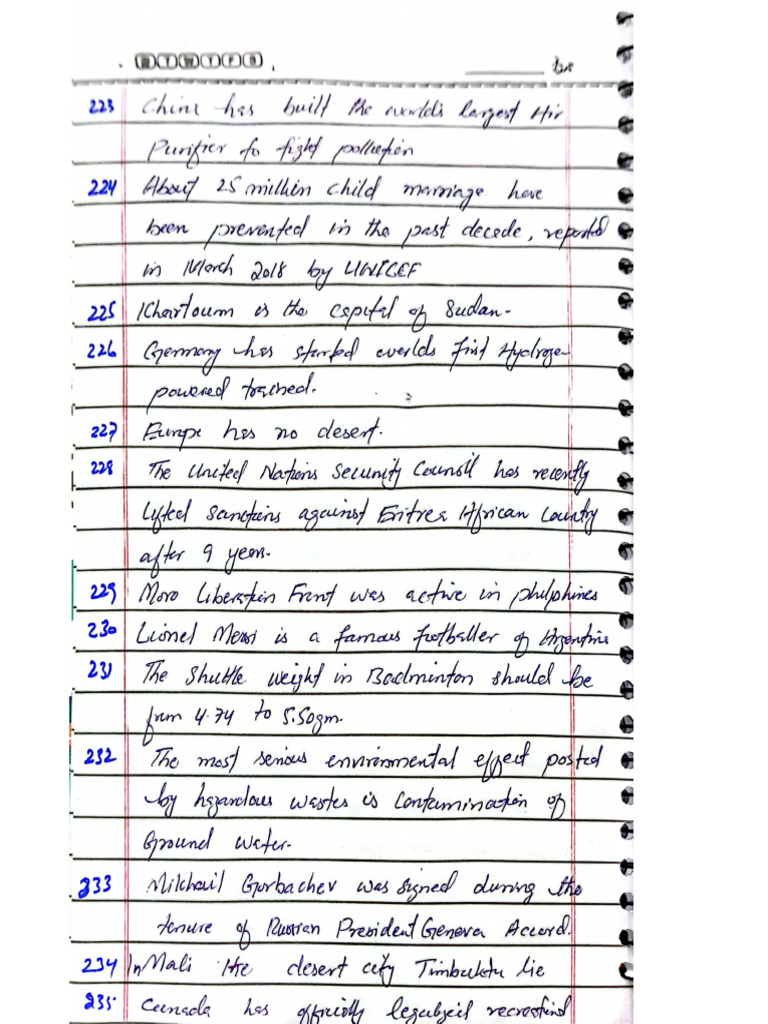 M T W T F S
223 China has built the world's largest Air
Purifier to fight pollution
224 About 25 million child marriage have
been prevented in the past decade, reported
in March 2018 by UNICEF
225 Khartoum is the capital of Sudan.
226 Germany has started worlds first Hydroge
powered trained.
227 Europe has no desert.
228 The United Nations Security Council has recently
lifted sanctions against Eritrea African Country
after 9 years.
229 Moro Liberation Front was active in philphines
230 Lionel Messi is a famous footballer of Argentina
231 The Shuttle weight in Badminton should be
from 4.74 to 5.50gm.
232 The most serious environmental effect posted
by hazardous wastes is Contamination of
Ground Water.
233 Milchail Gorbachev was signed during the
tenure of Russian President Geneva Accord.
234 In Mali the desert city Timbuktu lie
235 Canada has officially